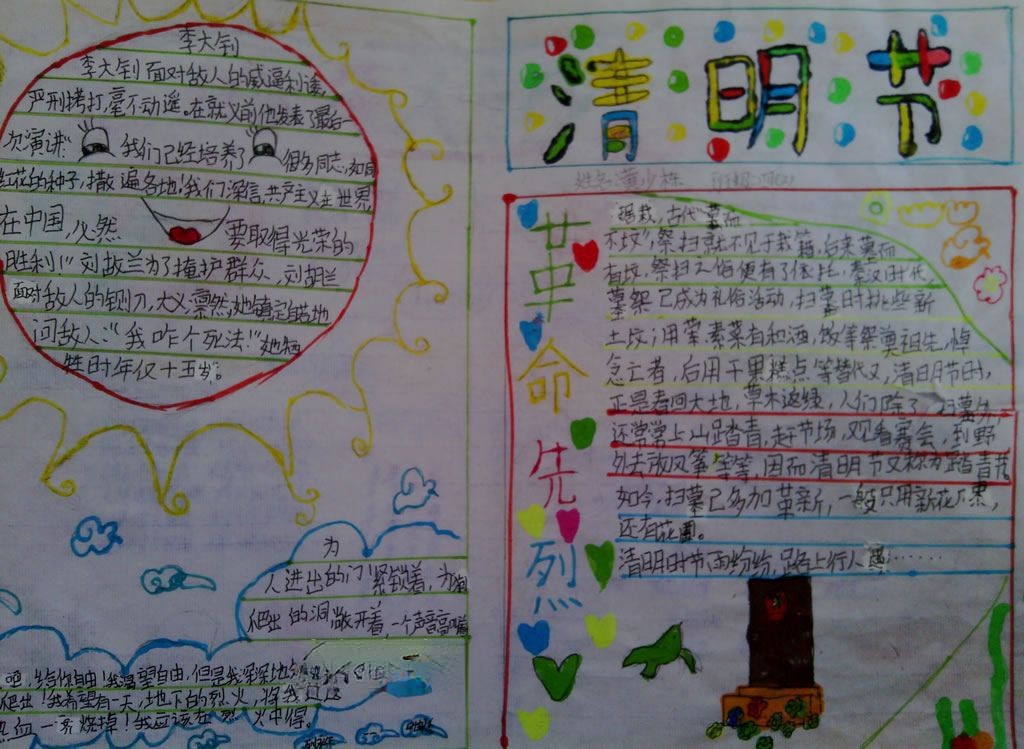 李大钊
李大钊面对敌人的威逼利诱,
严刑拷打,毫不动遥。在就义前他发表了最后一
次演讲:"我们已经培养了很多同志,如同
红花的种子,撒遍各地!我们深信,共产主义在世界,
在中国,必然要取得光荣的
胜利!"刘故兰为了掩护群众,刘胡兰
面对敌人的铡刀,大义凛然,她镇定自若地
问敌人:"我咋个死法!"她牺
牲时年仅十五岁。
为
人进出的门紧锁着,为狗
爬出的洞敞开着,一个声音高叫着
吧,给你自由!我渴望自由,但是我深深地
爬出!我希望有一天,地下的烈火,将我
热血一齐烧掉!我应该在烈火中得。
清明节
姓名:黄少栋
革命先烈
据载,古代"墓而
不坟",祭扫就不见于载籍,后来墓而
有坟,祭扫之俗便有了依托,秦汉时代
墓祭已成为礼俗活动,扫墓时挑些新
土坟;用荤素菜肴和酒,饭等祭奠祖先,悼
念亡者,后用干果糕点等替代又,清明节时,
正是春回大地,草木返绿,人们除了扫墓外,
还常常上山踏青,赶节场,观看赛会,到野
外去放风筝等等,因而清明节又称为踏青节
如今,扫墓已多加革新,一般只用新花水果,
还有花圈。
清明时节雨纷纷,路上行人……